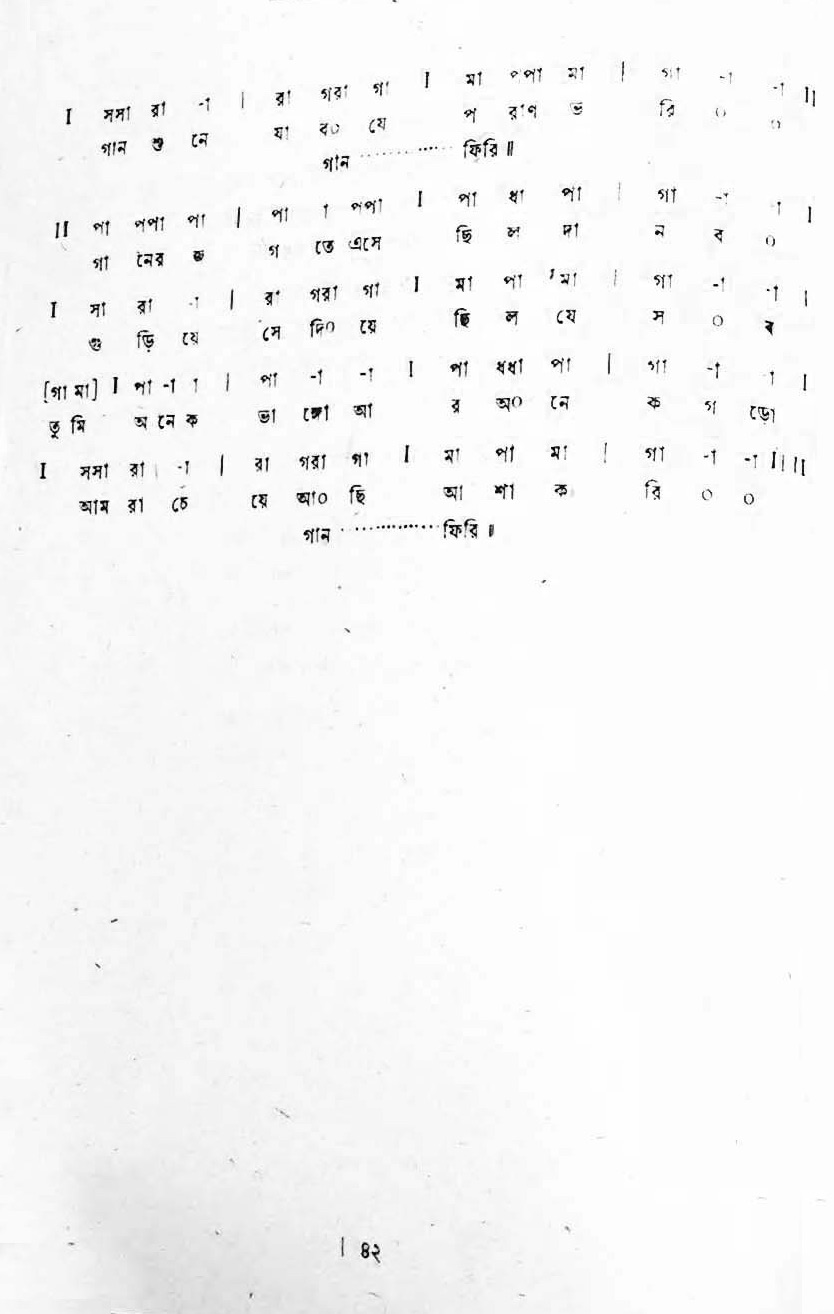 I সসা রা -া | রা গরা গা I মা পপা মা | গা -া -া II
গান শু নে যা ব০ যে প রাণ ভ রি ০ ০
গান ············ ফিরি ॥
II পা পপা পা | পা া পপা I পা ধা পা | গা -া া I
গা নের জ গ তে এসে ছি ল দা ন ব ০
I সা রা -া | রা গরা গা I মা পা মা | গা -া -া I
গু ড়ি য়ে সে দি০ য়ে ছি ল যে স ০ ব
[গা মা] I পা -া া | পা -া -া I পা ধধা পা | গা -া া I
তু মি অ নে ক ভা ঙ্গো আ র অ০ নে ক গ ড়ো
I সসা রা -া | রা গরা গা I মা পা মা | গা -া -া IIII
আম রা চে য়ে আ০ ছি আ শা ক রি ০ ০
গান ·············· ফিরি ॥
| ৪২